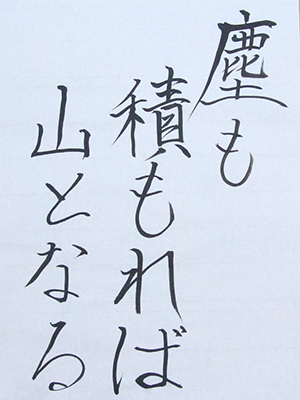 塵も
積もれば
山となる